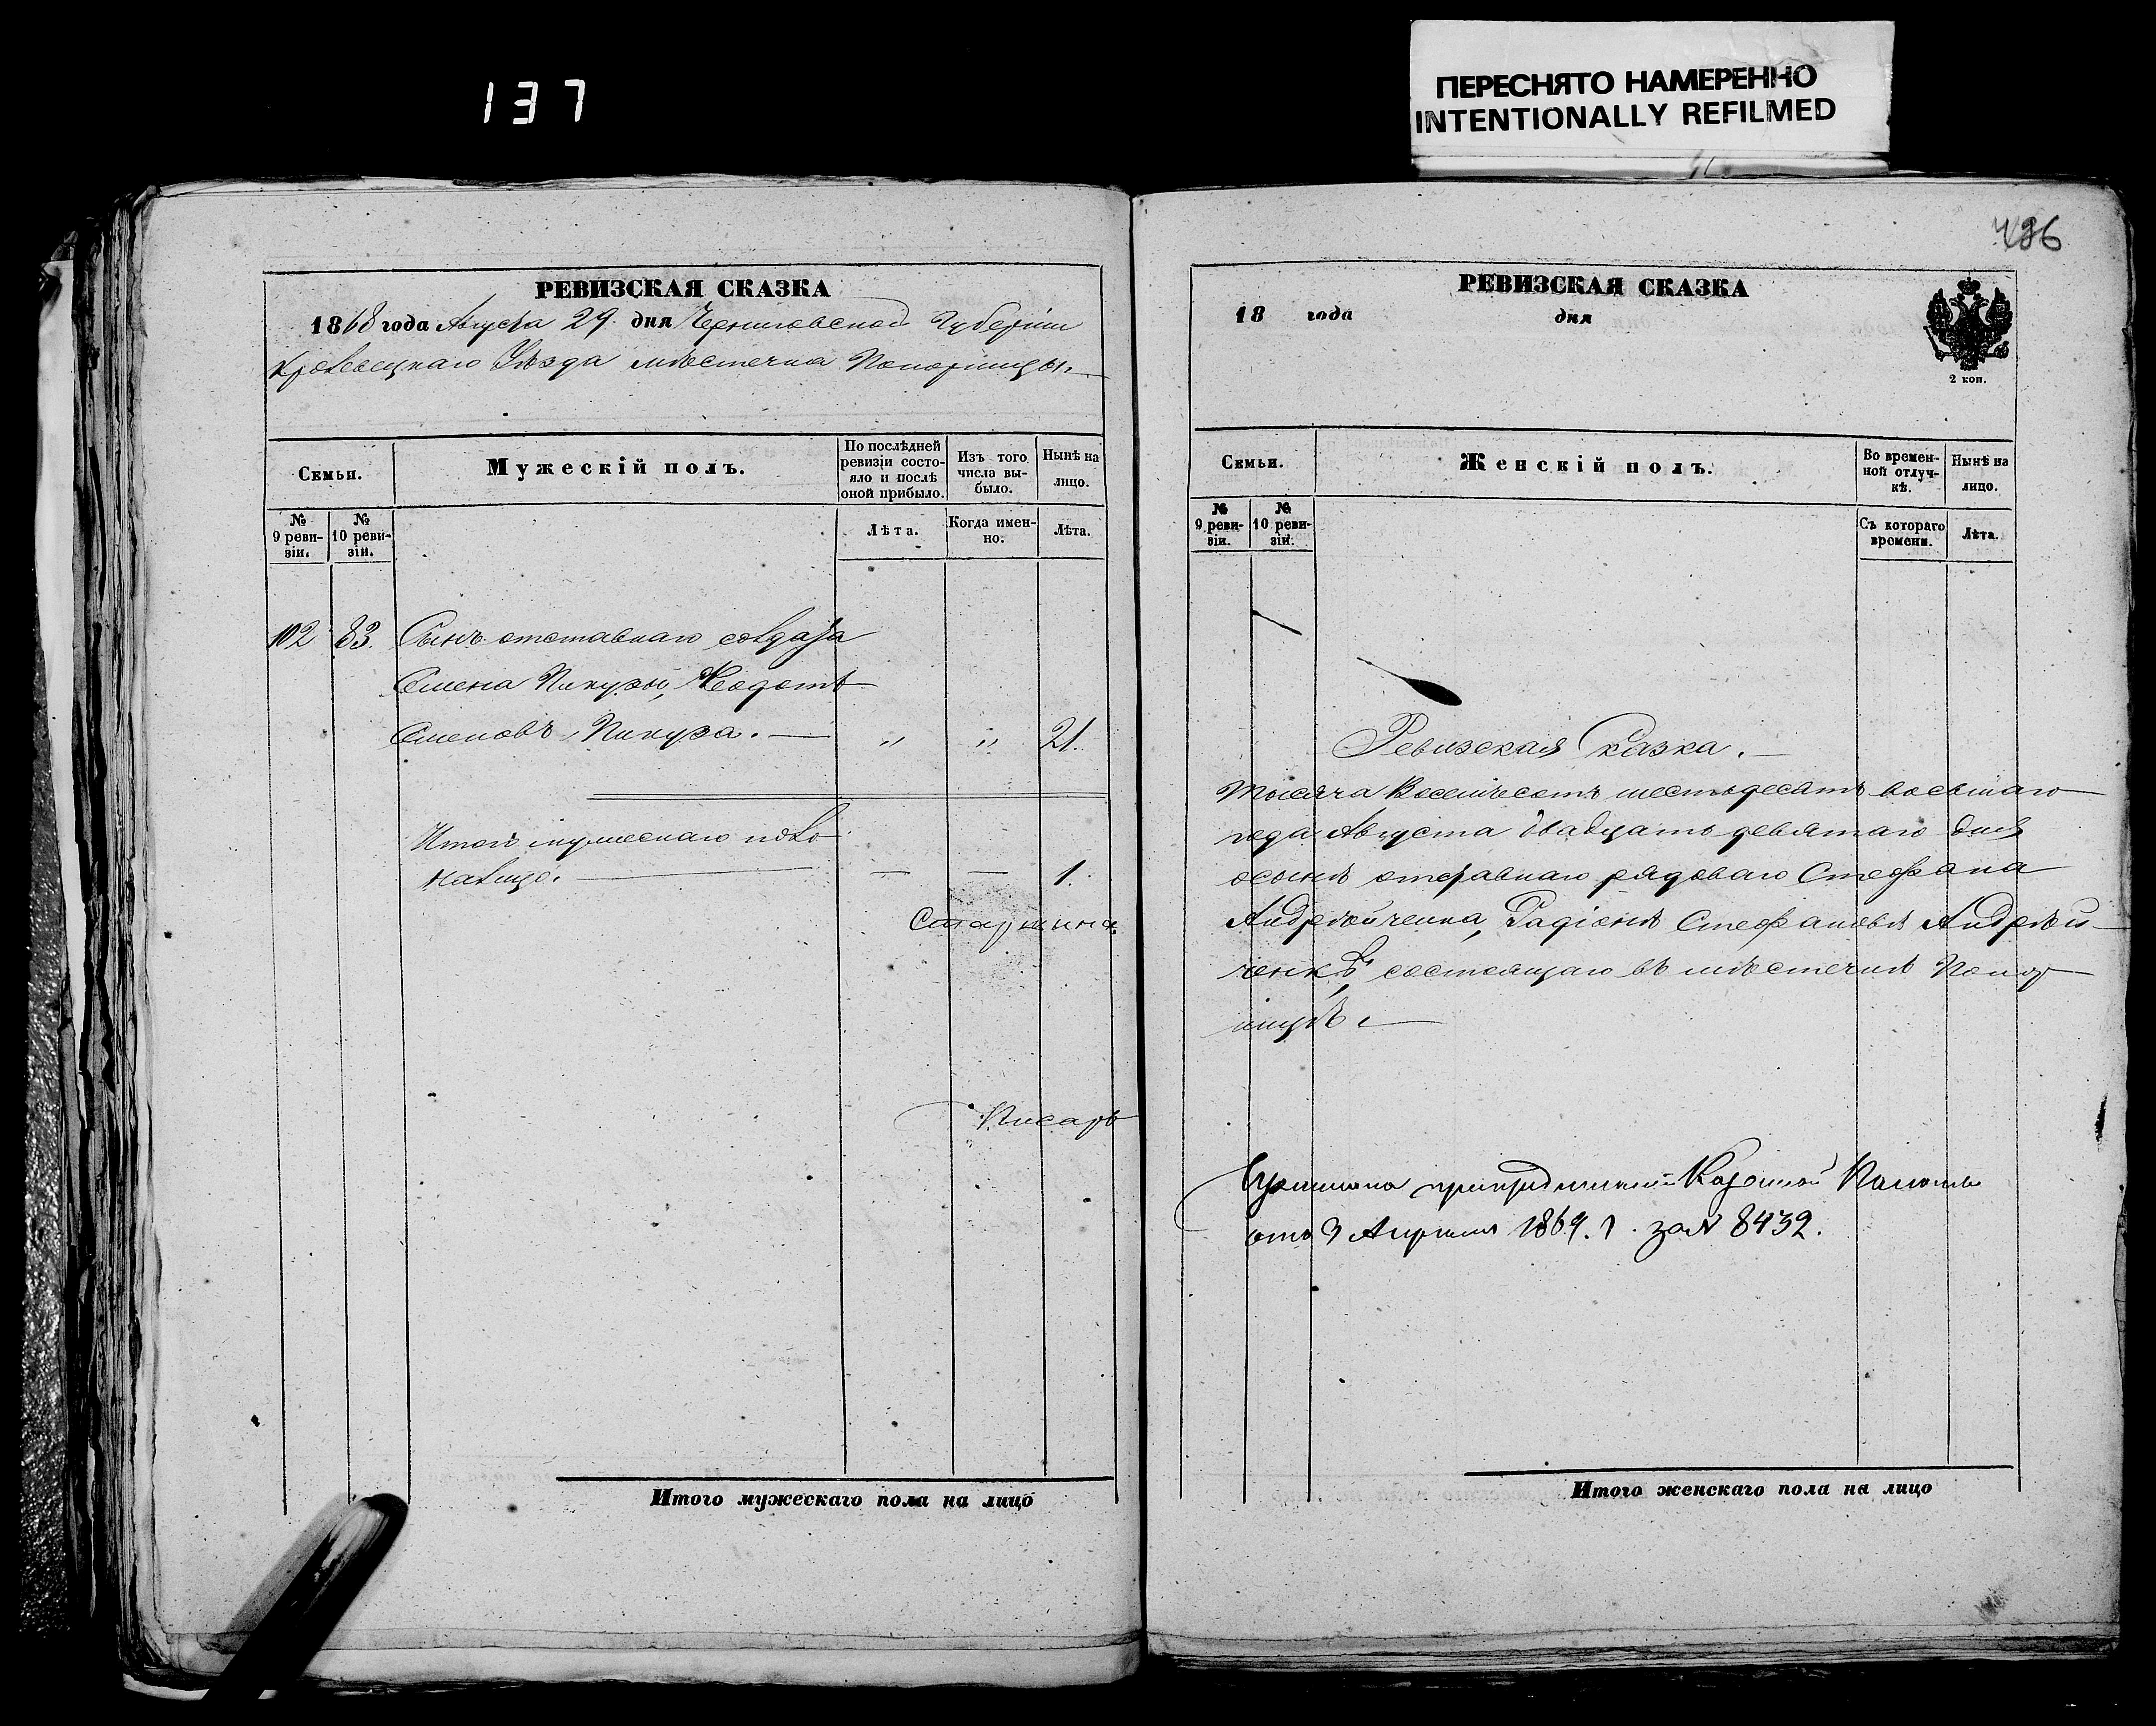 137
ПЕРЕСНЯТО НАМЕРЕННО
INTENTIONALLY REFILMED
РЕВИЗСКАЯ СКАЗКА
1868 года Августа 29 дня Черниговской Губерніи
Кролевецкаго Уѣзда мѣстечка Понорницы.
Семьи.
Мужескій полъ.
По послѣдней ревизіи состояло и послѣ оной прибыло.
Изъ того числа выбыло.
Нынѣ на лицо.
№ 9 ревизіи.
№ 10 ревизіи.
Лѣта.
Когда именно:
Лѣта.
102 83. Сынъ отставнаго солдата
Семена Пикузы, Ѳеодотъ
Семеновъ Пикуза. — " " 21.
Итого мужескаго пола
налицо. — — — 1.
Старшина
Писарь
Итого мужескаго пола на лицо
486
РЕВИЗСКАЯ СКАЗКА
18 года дня
2 коп.
Семьи.
Женскій полъ.
Во временной отлучкѣ.
Нынѣ на лицо.
№ 9 ревизіи.
№ 10 ревизіи.
Съ котораго времени.
Лѣта.
Ревизская Сказка. —
Тысяча Восемьсотъ шестьдесятъ восьмаго
года Августа двадцать девятаго дня
о сынѣ отставнаго рядоваго Стефана
Андрѣйченка, Радіонѣ Стефановѣ Андрѣй-
ченкѣ, состоящаго въ мѣстечкѣ Понор-
ницѣ. —
Казенной Палаты
отъ 9 Апрѣля 1869. г. за № 8432.
Итого женскаго пола на лицо